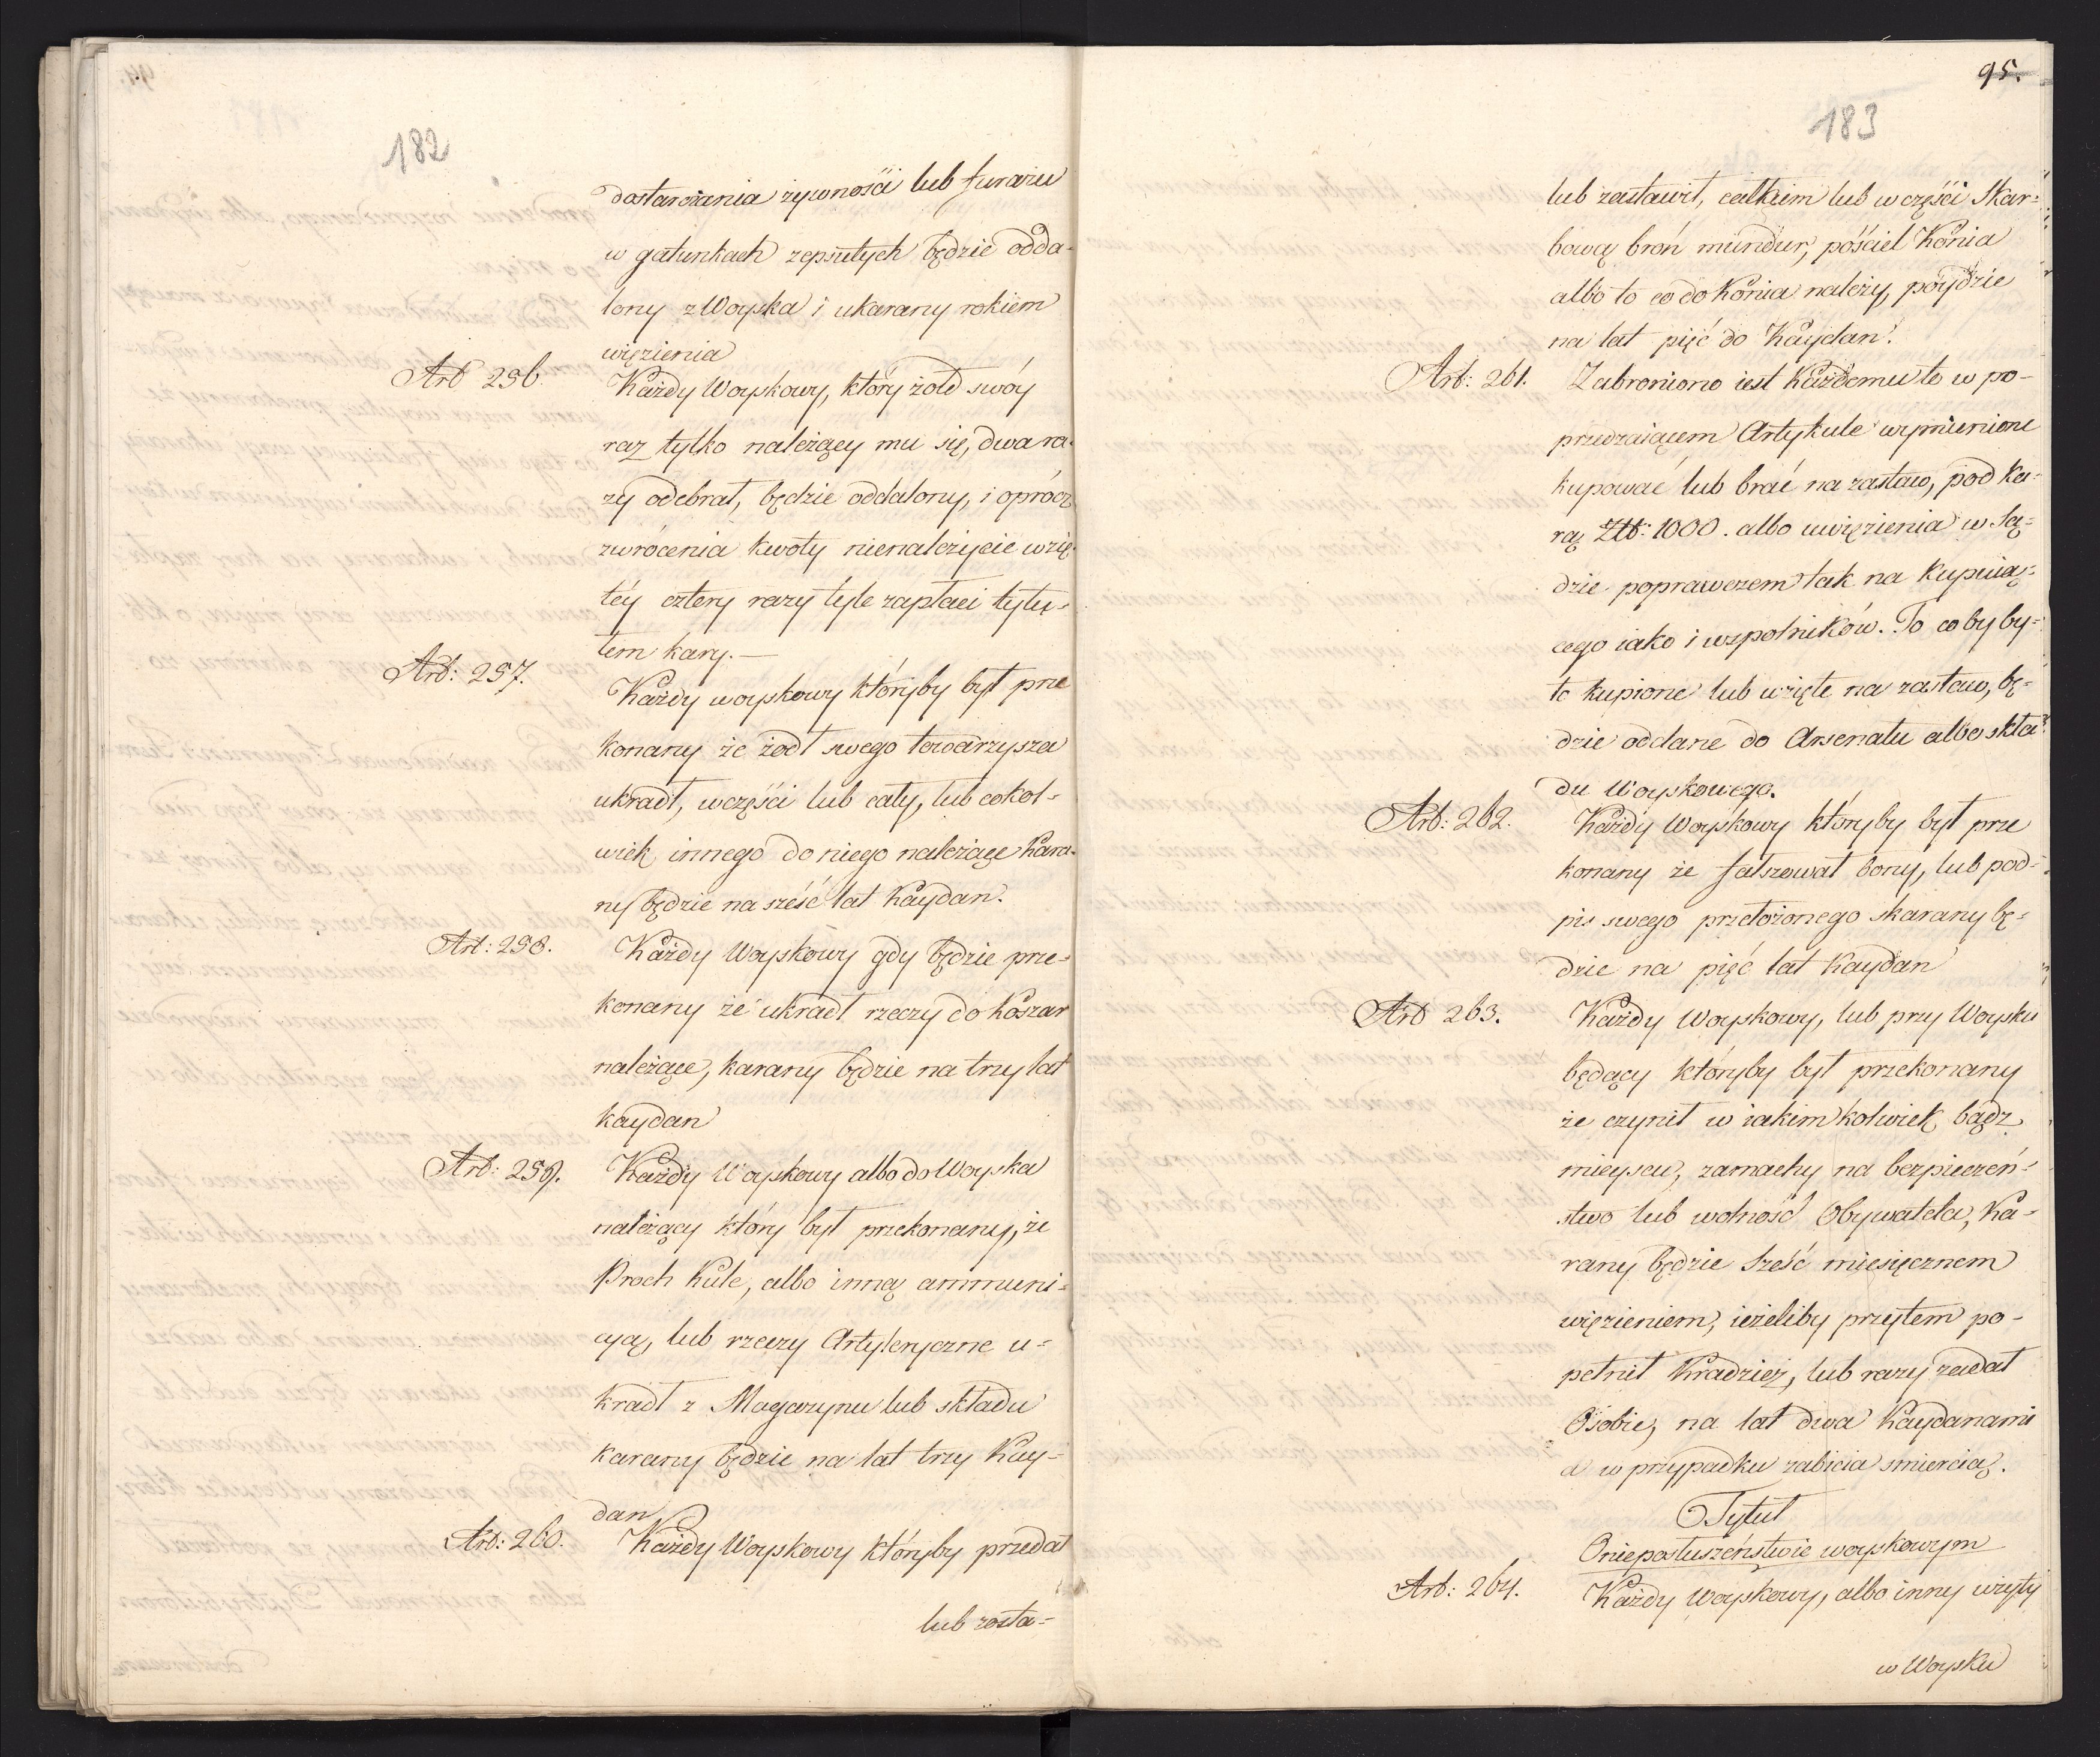 182
dostarczania żywności lub furażu
w gatunkach zepsutych będzie odda-
lony z Woyska i ukarany rokiem
więzienia
Art 256. Każdy Woyskowy, który żołd swóy
raz tylko należący mu się, dwa ra-
zy odebrał, będzie oddalony, i oprócz
zwrócenia kwoty nienależycie wzię-
téy cztery razy tyle zapłaci tytu-
łem kary.—
Art: 257. Każdy woyskowy któryby był prze
konany że żodł swego towarzysza
ukradł, w części lub cały, lub cokol-
wiek innego do niego należące kara-
ny będzie na sześć lat Kaydan.
Art: 258. Każdy Woyskowy gdy będzie prze-
konany że ukradł rzeczy do Koszar
należące, karany będzie na trzy lat
kaydan
Art: 259. Każdy Woyskowy albo do Woyska
należący który był przekonany, że
Proch Kule, albo inną ammuni-
cyą, lub rzeczy Artyleryczne u-
kradł z Magazynu lub składu
karany będzie na lat trzy Kay-
dan
Art: 260. Każdy Woyskowy któryby przedał
lub zasta-
95.
183
lub zastawił, całkiem lub w części Skar-
bową broń mundur, pościel Konia
albo to co do Konia należy, póydzie
na lat pięć do Kaydan.
Art: 261. Zabroniono iest Każdemu te w po-
przedzaiącem Artykule wymienione
kupować lub brać na zastaw, pod ka-
rą Złt: 1000. albo uwięzienia w Są-
dzie poprawczem tak na Kupuią-
cego iako i wspolników. To co by by-
ło kupione lub wzięte na zastaw, bę-
dzie oddane do Arsenału albo skła-
du Woyskowego.
Art: 262. Każdy Woyskowy któryby był prze
konany że fałszował bony, lub pod-
pis swego przełożonego skarany bę-
dzie na pięć lat Kaydan
Art 263. Każdy Woyskowy, lub przy Woysku
będący któryby był przekonany
że czynił w iakimkolwiek bądz
mieyscu, zamachy na bezpieczeń-
stwo lub wolność Obywatela, Ka-
rany będzie sześć miesięcznem
więzieniem, ieżeliby przytem po-
pełnił Kradzież, lub razy zadał
Osobie, na lat dwa Kaydanami
a w przypadku zabicia smiercią.
Tytuł
O nieposłuszeństwie woyskowym
Art: 264. Każdy Woyskowy, albo inny użyty
w Woysku